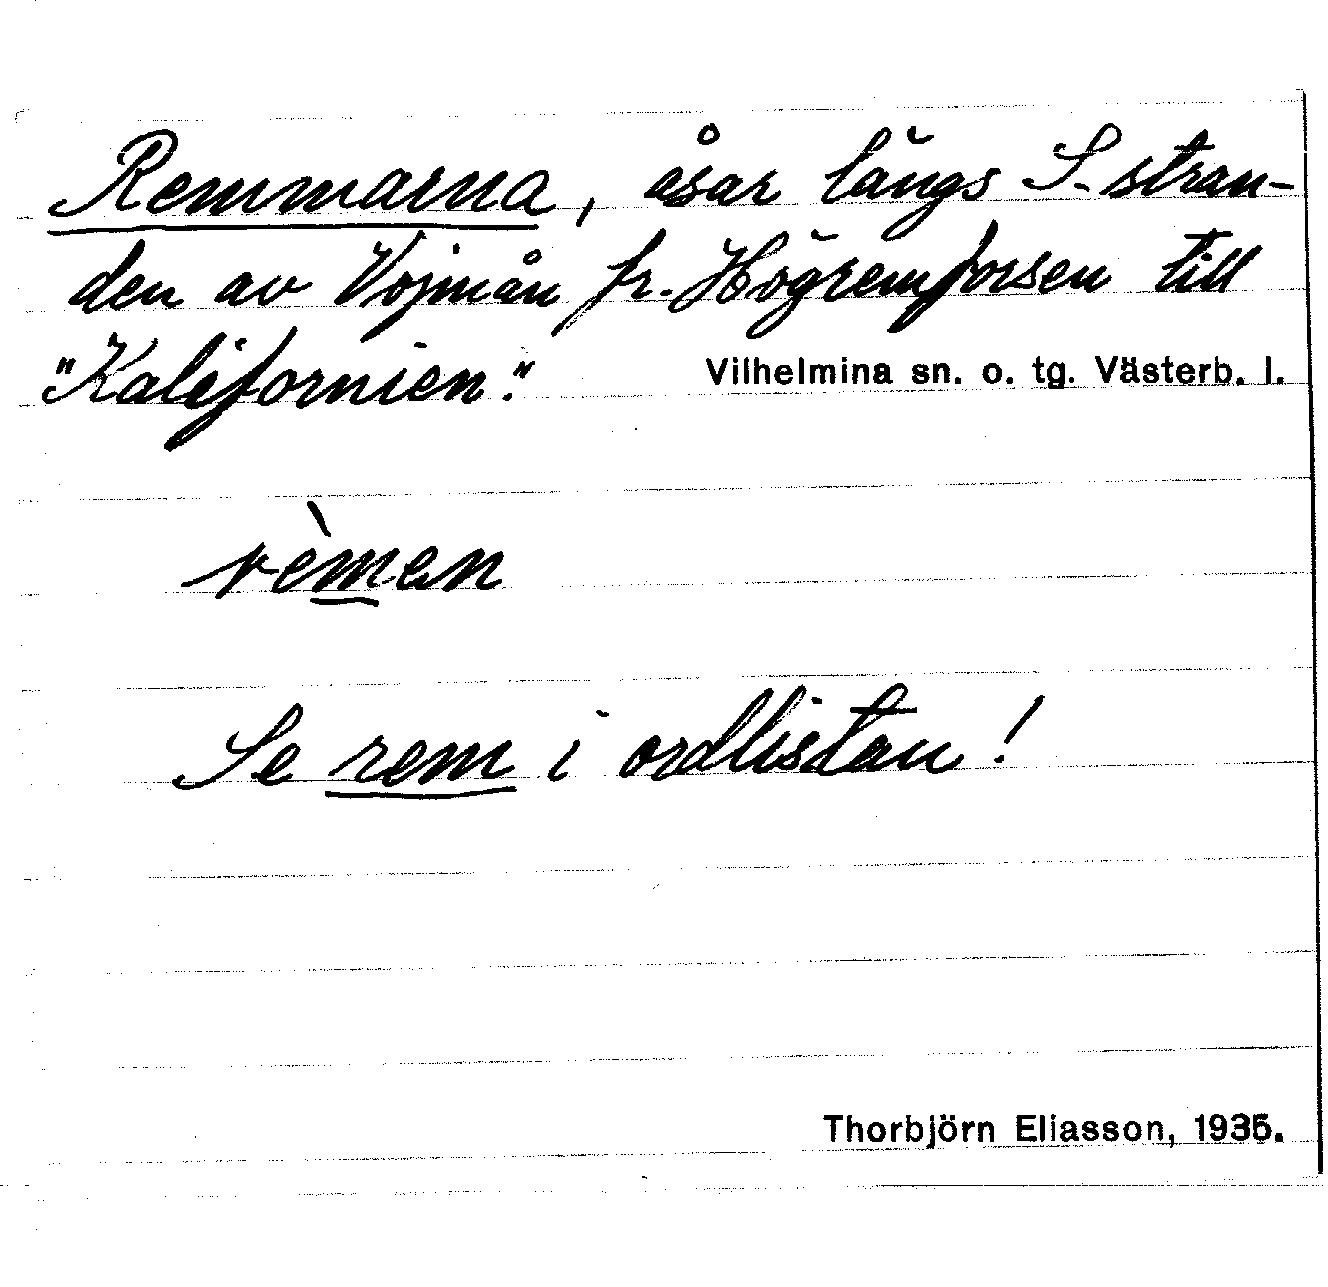 Remmarna, åsar längs S. stran-
den av Vojmån fr. Högremforsen till
"Kalifornien."
Vilhelmina sn. o. tg. Västerb. l.
rèmen
Se rem i ordlistan!
Thorbjörn Eliasson, 1935.